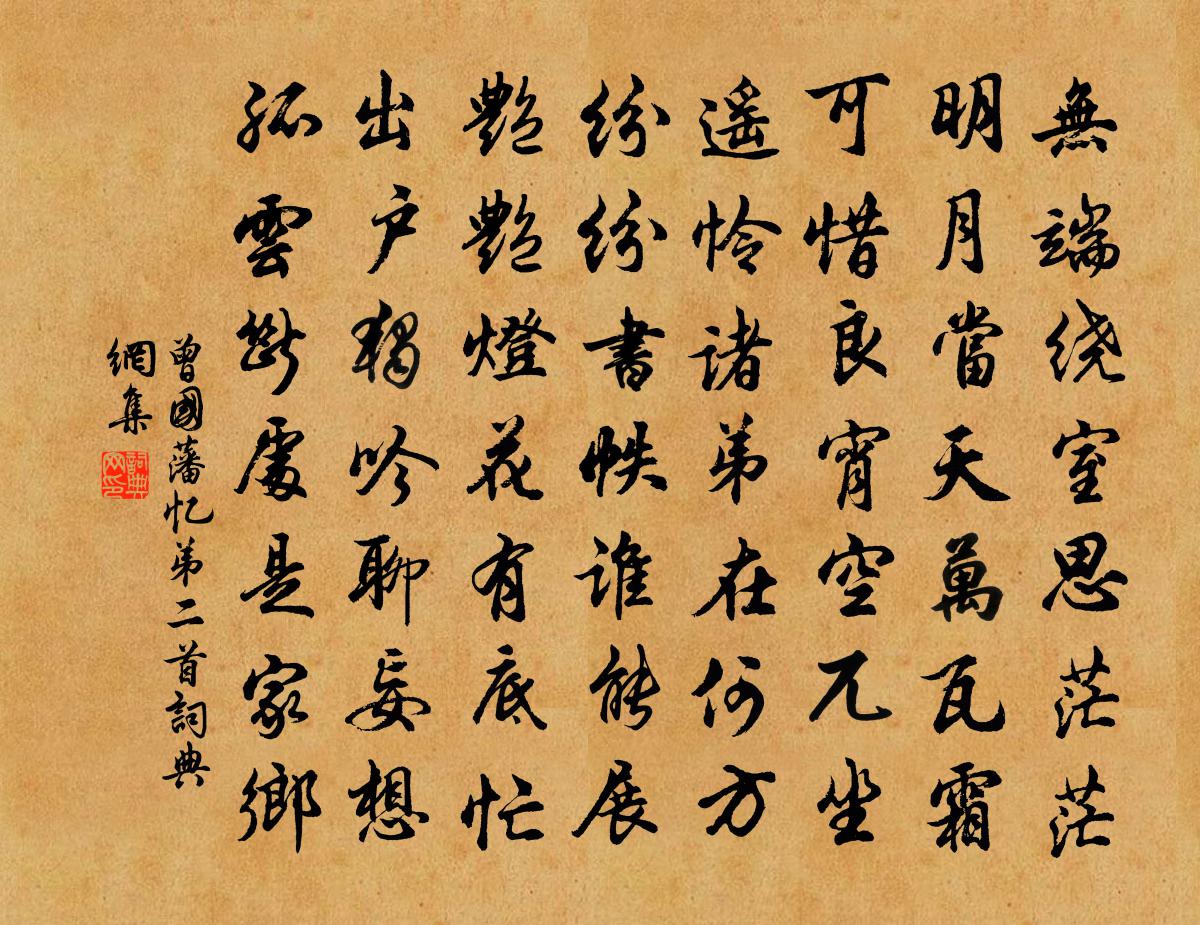 無端绕室思茫茫
明月當天萬瓦霜
可惜良宵空兀坐
遥怜诸弟在何方
纷纷書帙谁能展
艷艷燈花有底忙
出户独吟聊妄想
孤雲断處是家鄉
曾國藩忆弟二首詞典
網集
詞典
网印